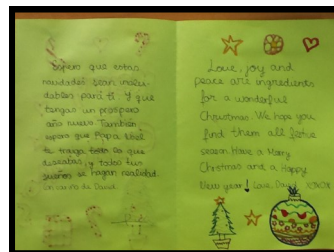 Espero que estas
navidades sean inolvi-
dables para ti y que
tengas un prospero
año nuevo. También
espero que Papá Noel
te traiga todo lo que
deseabas, y todos tus
sueños se hagan realidad.
de David.
Love, joy and
peace are ingredients
for a wonderful
Christmas. We hope you
find them all festive
season. Have a Merry
Christmas and a Happy
New year! Love, David